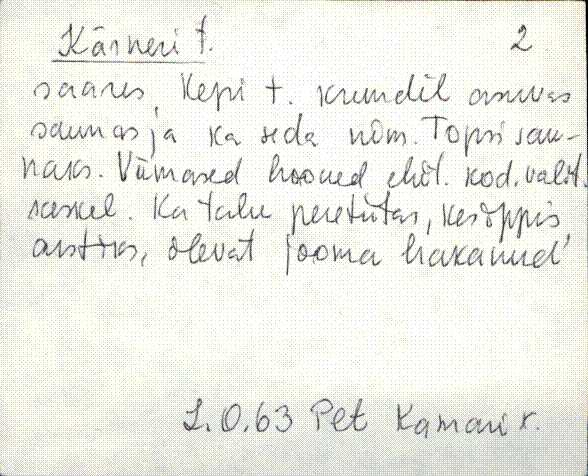 Kärneri t. 2
saares, Kepi t. krundil asuvas
saunas ja ka seda nim. Topsi sau-
naks. Viimased hooned ehit. kod. valit.
käskel. Ka talu peretütas, kes õppis
arstiks, olevat jooma hakanud
L.O.63 Pet Kamari k.